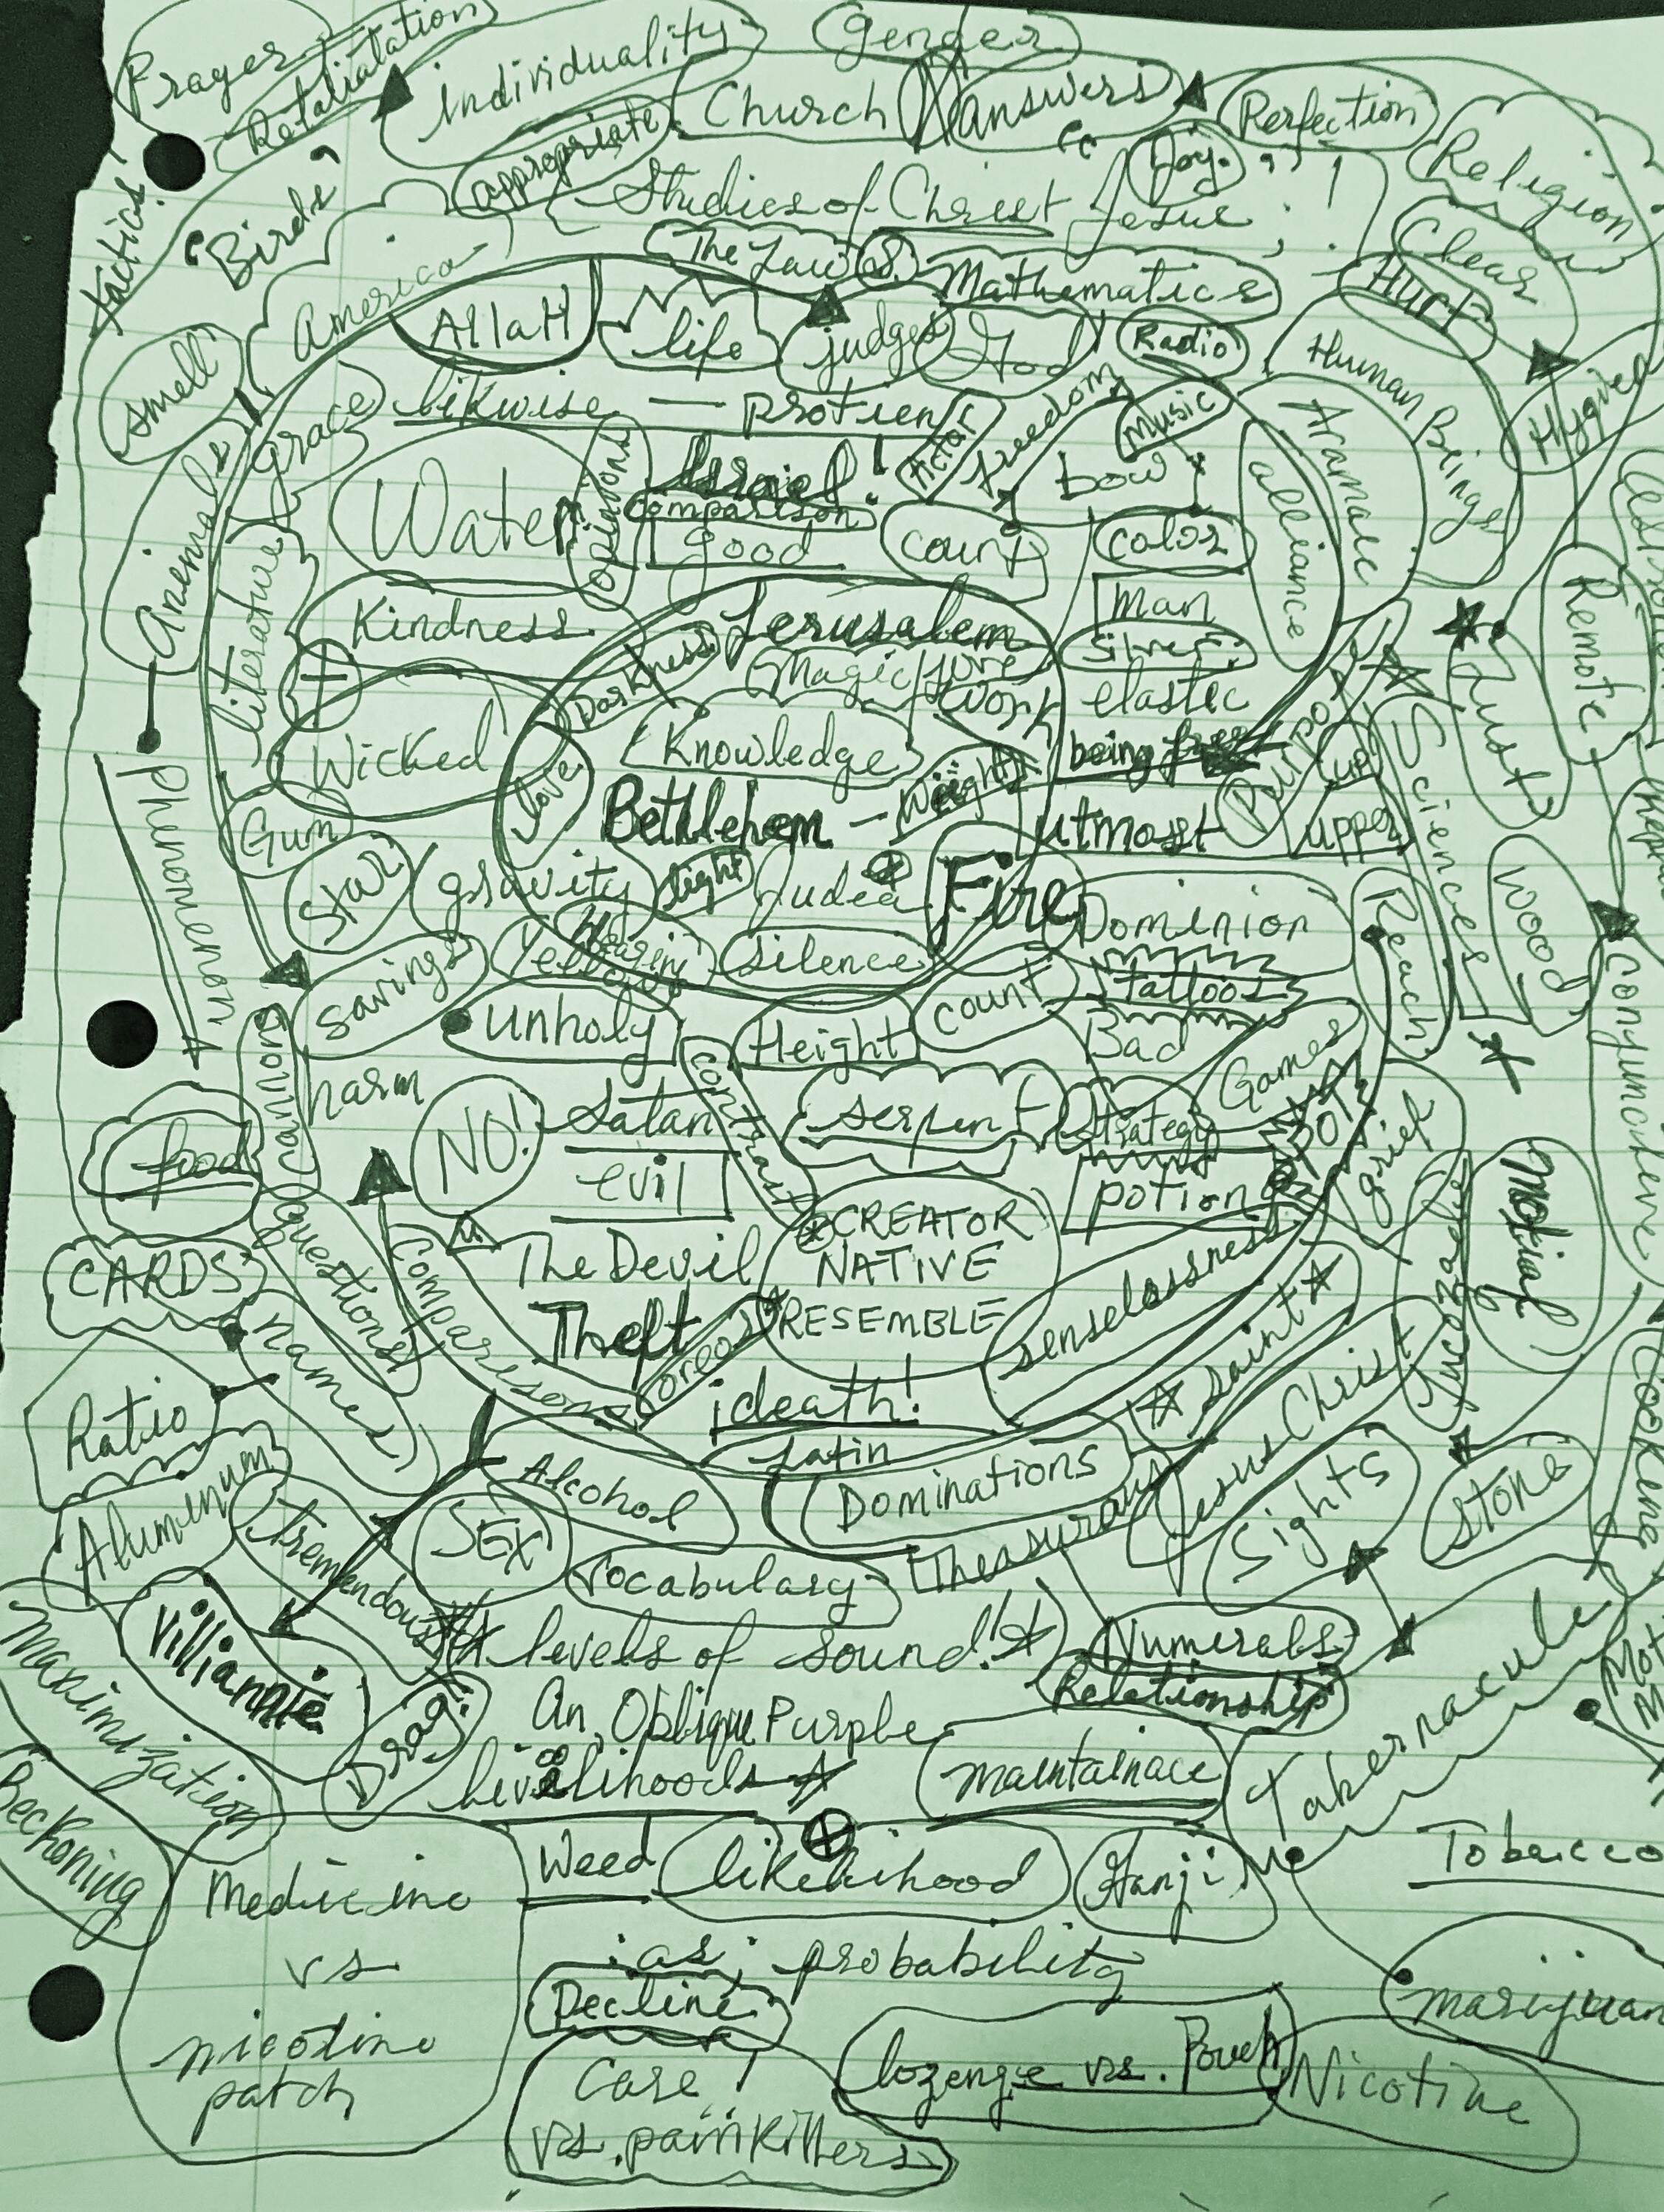 Prayer
Retaliation
Individuality
Gender
Church
Answers
Perfection
Religion
tactics!
"Birds"
appropriate
Studies of Christ Jesus
Joy.
Clear
Hurt
America
The Law &
Mathematics
AllaH
life
judges
God
Radio
Human Beings
Hygiene
smell
Animals
Grace
likwise — protien
Altar
freedom
Music
bow
Aramaic
alliance
Water
opinions
Israel!
comparison
good
count
color
literature
Kindness
Jerusalem
man
silver
Remote
Darkness
Magic/fire
work
elastic
Purpose
Lust
Wicked
love
Knowledge
being free
up
Sciences
Gum
Bethlehem — weight
utmost
upper
phenomenon
Star
gravity
light
Judea
Fire
Dominion
Reach
wood
savings
Hearing
Yellow
silence
conjunctive
unholy
Height
count
tattoos
Bad
Games
cannons
harm
NO!
Satan
contrast
serpent
strategy
grief
food
evil
potion
Motial
questions
The Devil
CREATOR
NATIVE
RESEMBLE
senselessness
CARDS
names
Comparisons
Theft
oreos
saint
Jesus Christ
Cookene
Ratio
¡death!
Latin
Alcohol
Dominations
Sights
stone
Alumenum
Tremendous
SEX
vocabulary
Theasuraus
levels of sound!
Numerals
Relationship
Tabernacule
Maximization
Villianie
Drag!
An Oblique Purple
livelihoods
maintainace
Beckoning
Weed
likelihood
Ganji
Tobacco
Medicine
vs
nicotine
patch
:as; probability
Decline
marijuan
Case!
vs. painkillers
lozenge vs. Pouch
Nicotine